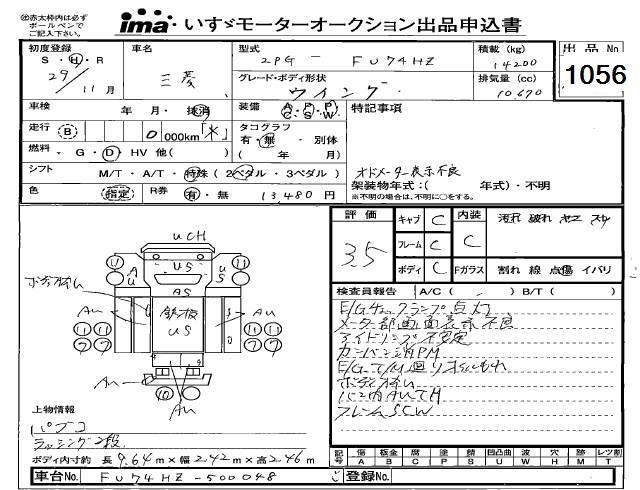 ㊟赤太枠内は必ず
ボールペンで
ご記入下さい。
ima いすゞモーターオークション出品申込書
初度登録 S・H・R 29/11月
車名 三菱
型式 2PG - FU74HZ
積載(kg) 14200
出品No 1056
グレード・ボディ形状 ウイング
排気量(cc) 10,670
車検 年 月・抹消
装備 A・P・P C・S・W
特記事項
走行 B 0 000km「*」
タコグラフ 有・無・別体 ( 年 月)
燃料 ・G・D・HV 他( )
シフト M/T・A/T・特殊(2ペダル・3ペダル)
オドメーター表示不良
架装物年式:( 年式)・不明
※不明の場合は、不明に○をする。
色 指定 R券 有・無 13480円
評価 3.5
キャブ C 内装 C 汚れ 破れ ヤニ スレ
フレーム C
ボディ C Fガラス 割れ 線 点傷 イバリ
検査員報告 A/C( ) B/T( )
E/Gチェックランプ点灯
メーター部画面表示不良
アイドリング不安定
カンバン消PM
E/G T/M廻りオイルもれ
ボディ
フレームSCW
UCH
US
A U
U S
AS
鉄板
US
Au
Au
Au
Au
11 11
11 11 11 11
7 7 7 7
10
上物情報
パブコ
ラッシング2段
ボディ内寸約 長 9.64m×幅 2.42m×高 2.46m
記号 傷 A 板金 B 腐 C 塗 P 錆 S 凹凸曲 U 波 W 穴 H 跡 M レツ割 T
車台No. FU74HZ-500048
登録No.